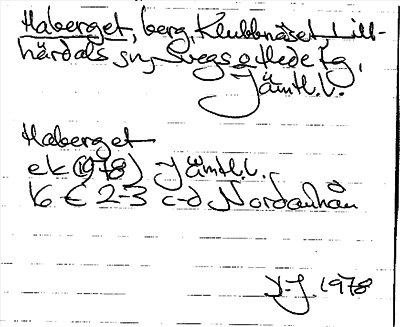 Haberget, berg, Klubbnäset, Lill-
härdals sn, Svegs o Hede tg,
Jämtl.l.
Haberget
ek (1978) Jämtl.l.
16 E 2-3 c-d Nordanhån
1978